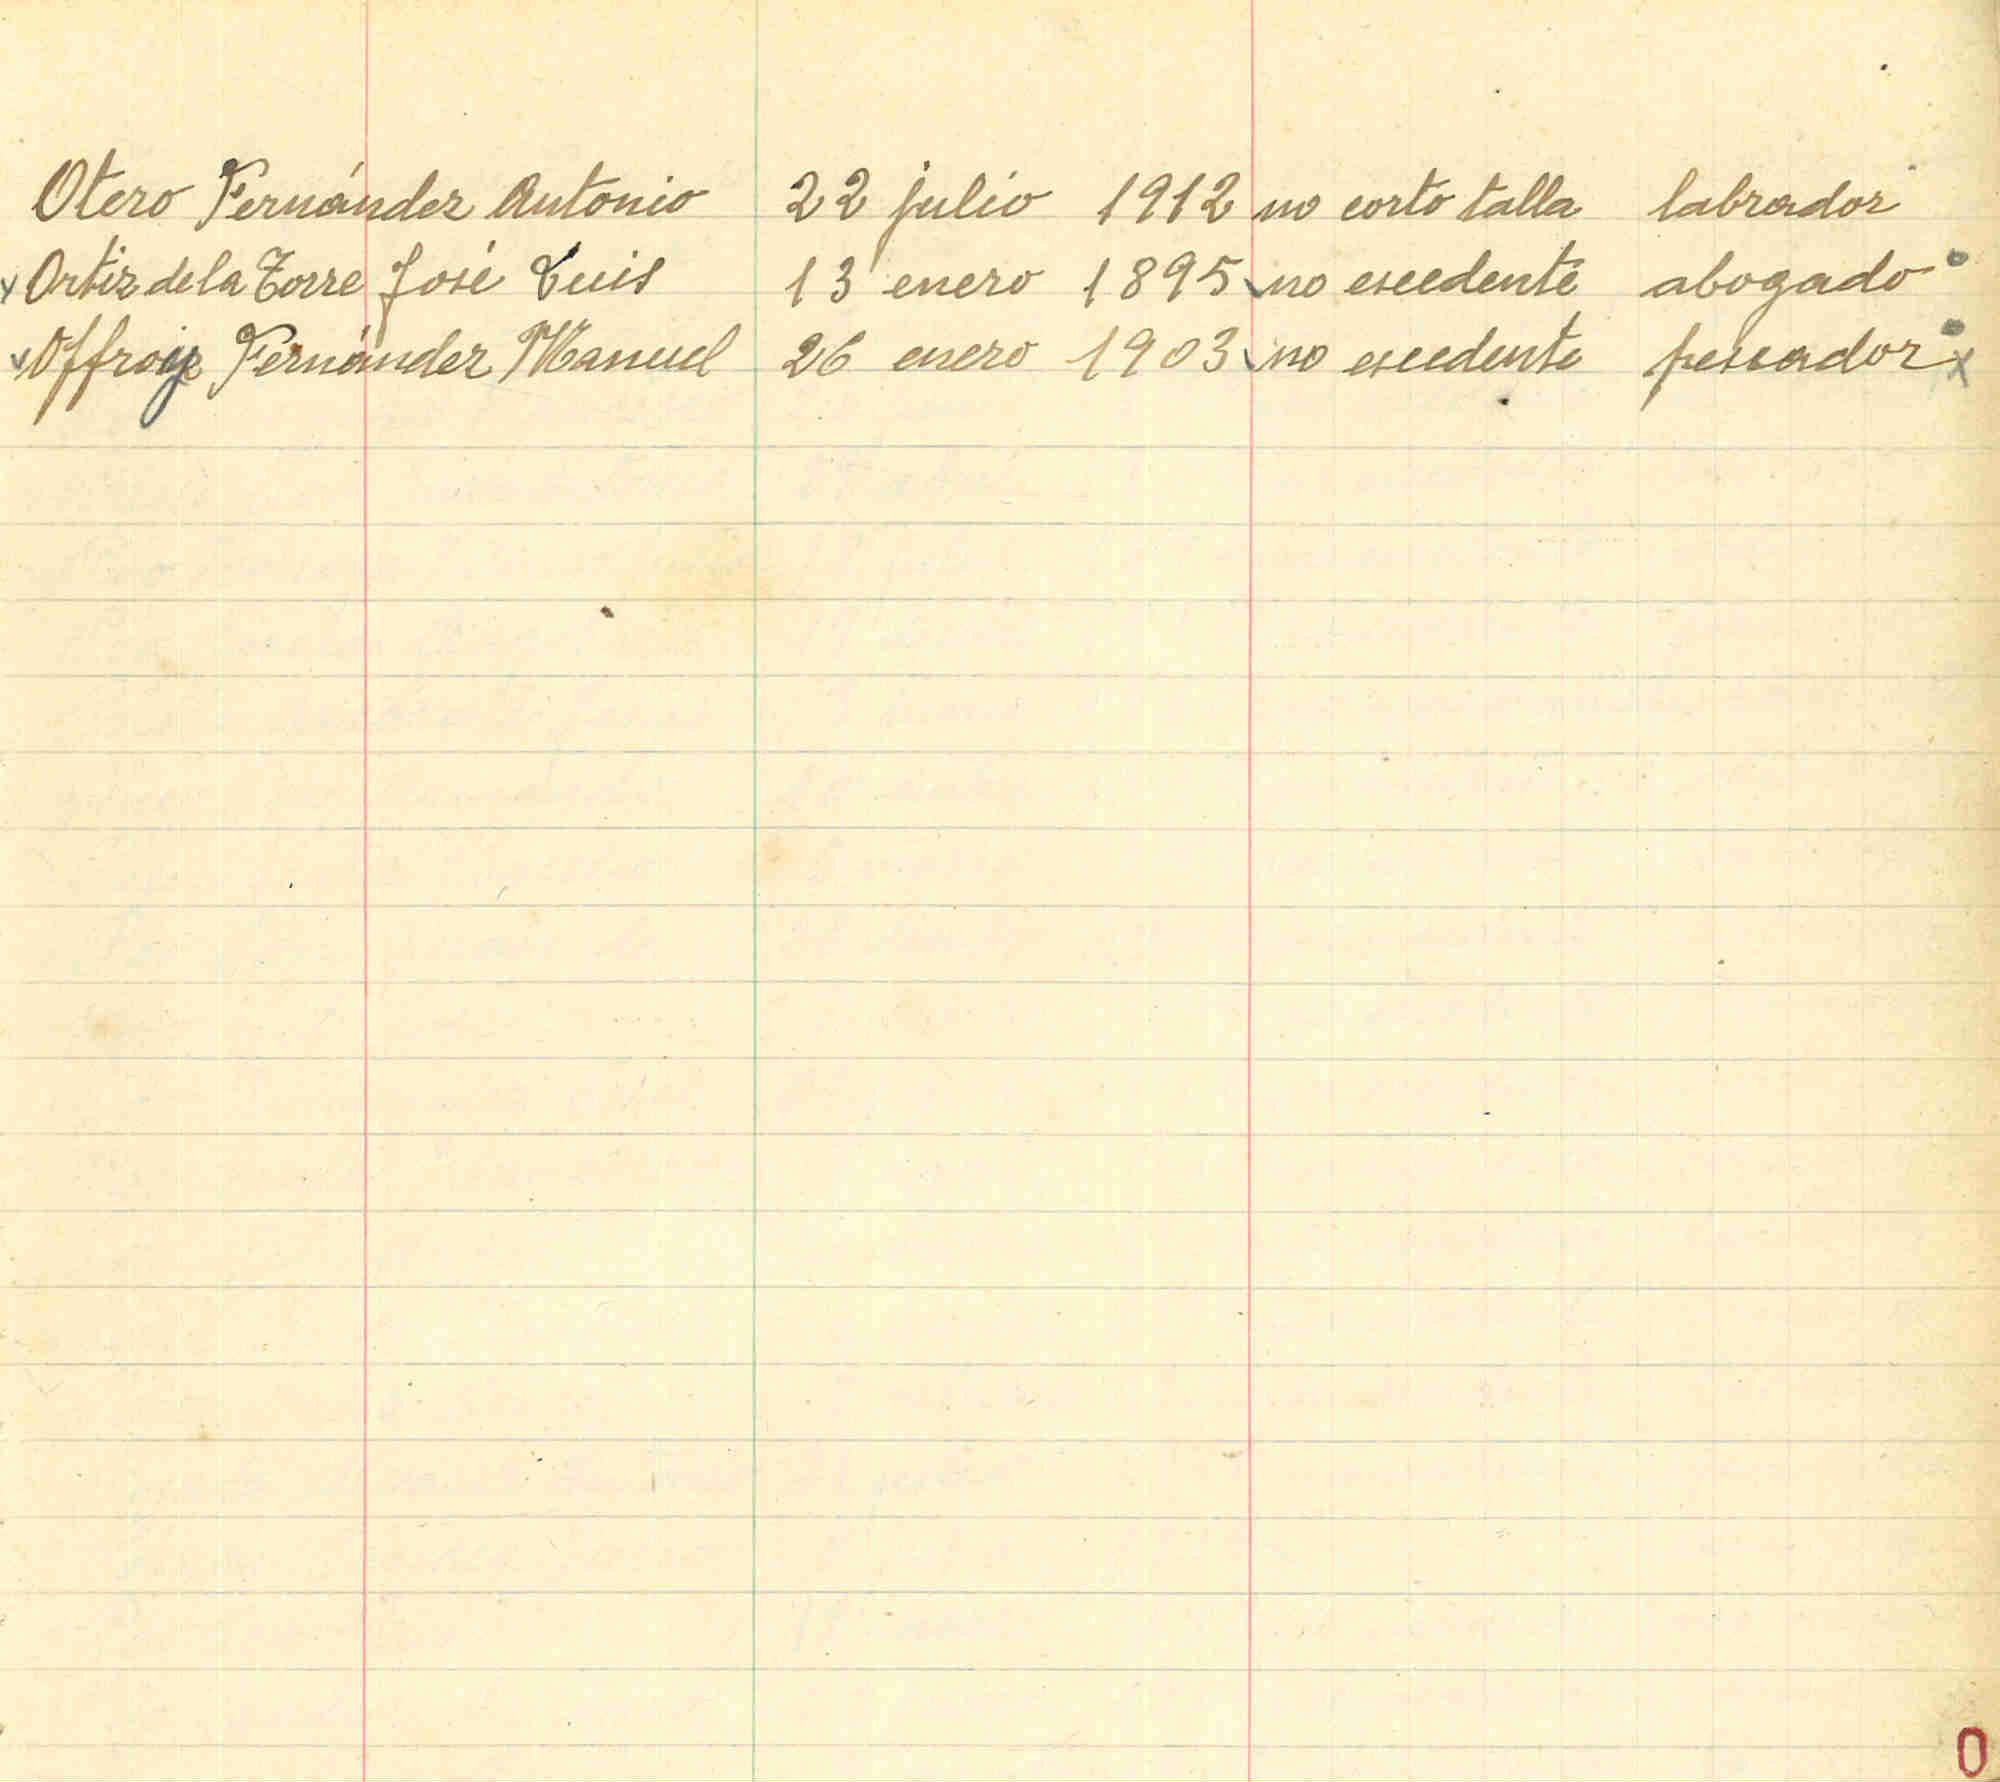 Otero Fernández Antonio 22 julio 1912 no corto talla labrador
x Ortiz de la Torre José Luis 13 enero 1895 no escedente abogado
x Fernández Manuel 26 enero 1903 no escedente pescador x
O